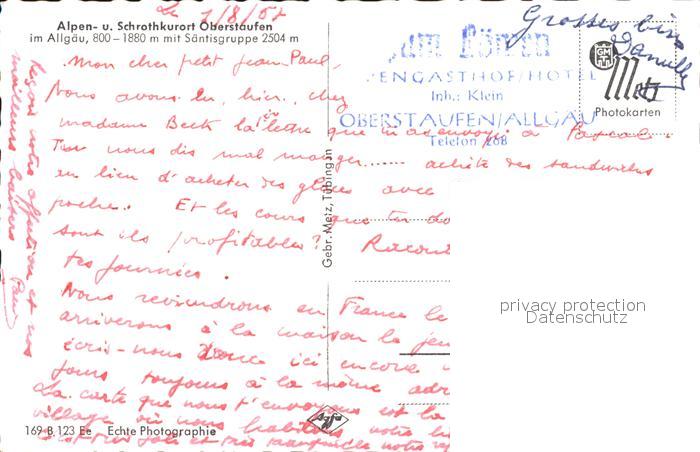 Le 1/8/67
Alpen- u. Schrothkurort Oberstaufen
im Allgäu, 800–1880 m mit Säntisgruppe 2504 m
Grosses bises
Danielle
ENGASTHOF/HOTEL
Inh.: Klein
OBERSTAUFEN/ALLGÄU
Telefon 268
GM
Metz
Photokarten
Mon cher petit Jean Paul,
Nous avons lu, hier, chez
madame Beck la lettre que tu as envoyé a Pascale.
Tu nous dis mal manger...... achète des sandwichs
au lieu d'acheter des glaces avec
poche. Et les cours que tu do
sont ils profitables? Racon
tes journées.
Nous reviendrons en France le
arriverons à la maison le jeu
écris-nous donc ici encore
jours toujours à la même adr
La carte que nous t'envoyons est la
village où nous habitons notre
Reçois notre affection et nos
meilleurs baisers
Gebr. Metz, Tübingen
privacy protection
Datenschutz
Agfa
169 B 123 Ee Echte Photographie